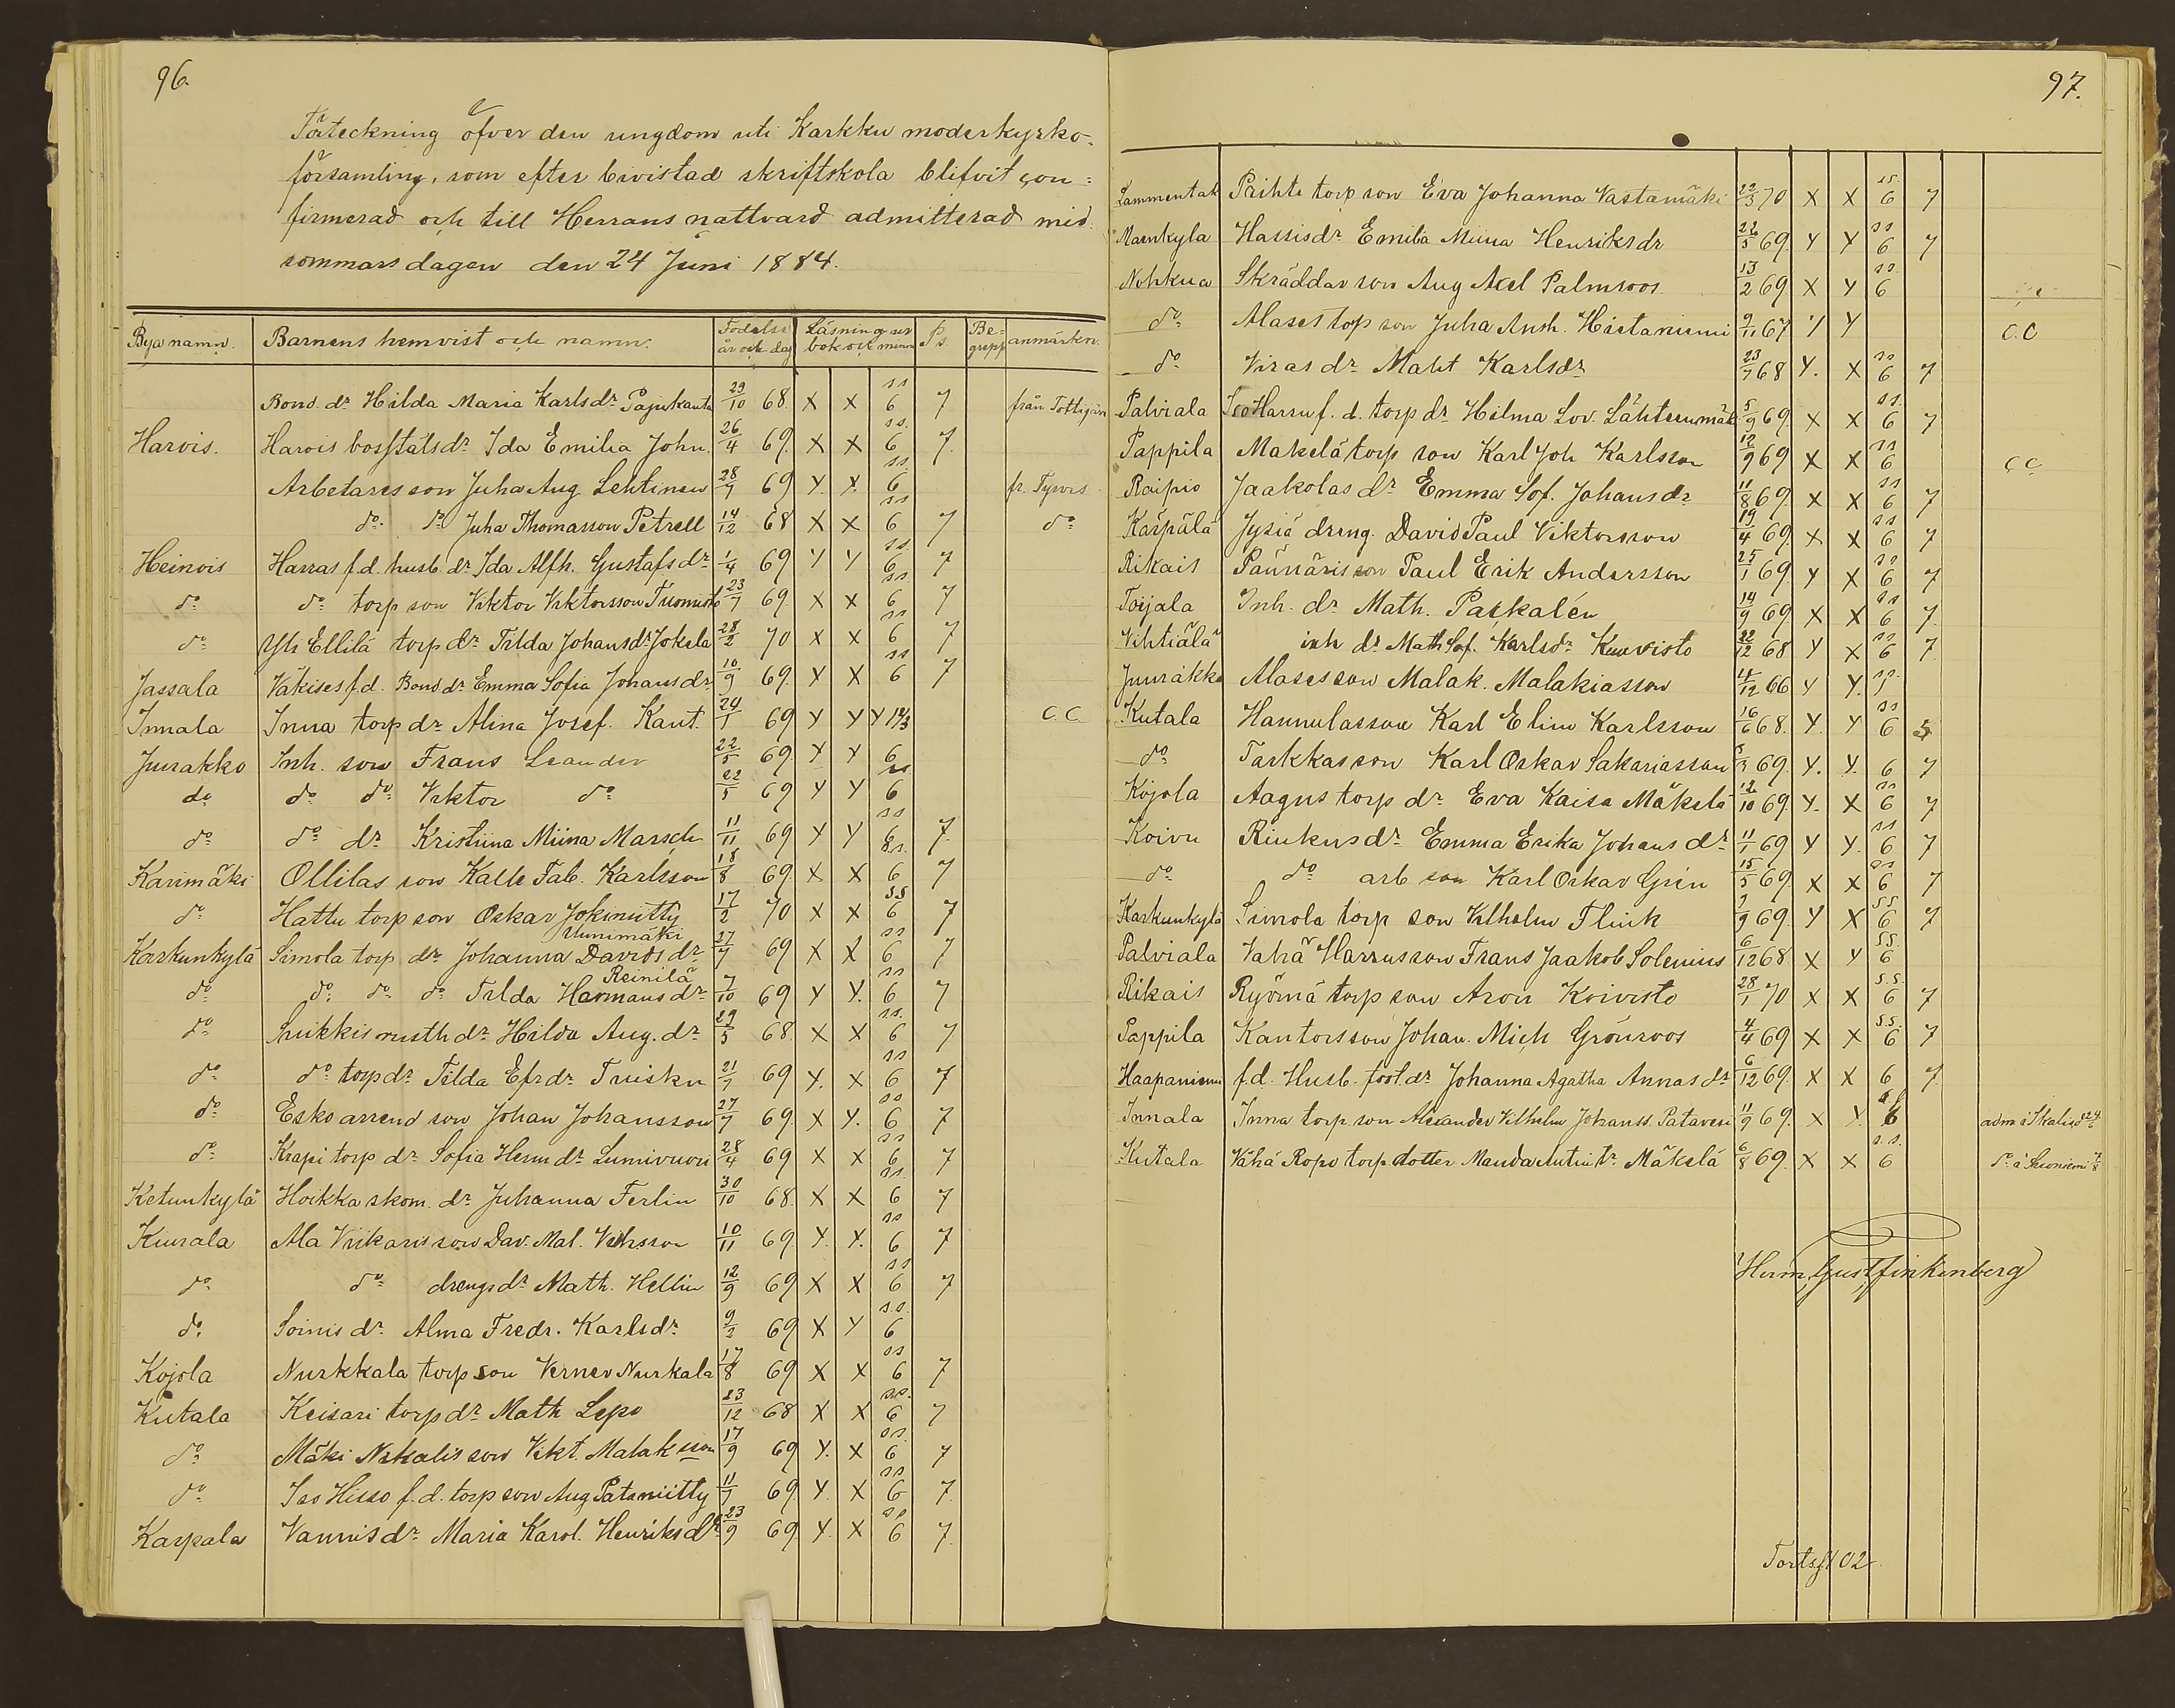 96.
Förteckning öfver den ungdom uti Karkku moderkyrko-
församling, som efter bivistad skriftskola blifvit con=
firmerad och till Herrans nattvard admitterad mid-
sommarsdagen den 24 Juni 1884.
Byanamn. Barnens hemvist och namn. Födelse år och dag Läsning ur bok och minne Ps. Be=gripp anmärkn.
Bond. dr Hilda Maria Karlsdr Pajukanta 29/10 68. X X ss 6 7
Harois. Harois bosstätsdr Ida Emilia John. 26/4 69. X X ss. 6 7.
Arbetares son Juha Aug Lehtinen 28/7 69 Y. Y. ss 6 fr. Tyrvis
do do Juha Thomasson Petrell 14/12 68 X X ss 6 7 do
Heinois Harras f.d. husb. dr Ida Alfh. Gustafsdr 1/4 69 Y Y ss. 6 7
do do torp son Viktor Viktorsson Tuomisto 23/7 69. X X ss. 6 7
do Yli Ellilä torp dr Tilda Johansdr Jokela 28/2 70 X X ss 6 7
Jassala Väkises f.d. Bond dr Emma Sofia Johansdr 10/9 69. Y X ss 6 7
Innala Inna torp dr Alina Josef. Kant. 24/1 69 Y Y Y C.C.
Juurakko Inh. son Frans Leander 22/5 69. Y Y 6
do do do Viktor do 22/5 69 Y Y ss. 6
do do dr Kristiina Miina Marsch 11/11 69 Y Y ss 6 7.
Karimäki Ollilas son Kalle Fab. Karlsson 18/8 69. X X s.s. 6 7
do Hattu torp son Oskar Jokiniitty 17/2 70 X X s.s 6 7
Uunimäki
Karkunkylä Simola torp dr Johanna Davidsdr 27/7 69 X X ss 6 7
Reinilä
do do do do Tilda Hermansdr 7/10 69 Y Y. ss 6 7
do Suikkis rusth dr Hilda Aug. dr 29/5 68. X X ss. 6 7
do do torp dr Tilda Efr dr Tuisku 21/7 69 Y. X ss 6 7
do Esko arrend son Johan Johansson 27/7 69. X Y. ss 6 7
do Krapi torp dr Sofia Herm dr Lumivuori 28/4 69 X X ss 6 7
Ketunkylä Hoikka skom. dr Juhanna Ferlin 30/10 68. X X ss. 6 7
Kiurala Ala Viikaris son Dav. Mal. 10/11 69. Y. Y. ss 6 7
do do drengs dr Math. Hellin 12/9 69 X X ss 6 7
do. Soinis dr Alma Fredr. Karlsdr 9/2 69 X Y s.s. 6
Kojola Nurkkala torp son Verner Nurkala 17/8 69 X X ss 6 7
Kutala Keisari torp dr Math Lepo 23/12 68 X X ss. 6 7
do Mäki Nikalis son Vikt. Malaksson 17/9 69 Y. X ss. 6 7
do Iso Hisso f.d. torp son Aug Pataniitty 11/7 69. Y. X ss 6 7.
Karpala Vannis dr Maria Karol. Henriksdr 23/9 69. Y. X ss 6 7.
97.
Lammentak Prihti torp son Eva Johanna Vastamäki 22/3 70 X X ss. 6 7
Maenkyla Hassis dr Emilia Miina Henriksdr 22/5 69. Y Y ss 6 7
Nohkua Skräddar son Aug Axel Palmroos 13/2 69 X Y ss. 6
do Alases torp son Juha Ansh. Hietaniemi 9/11 67 Y Y C.C
do Viras dr Matht Karlsdr 23/7 68 Y. X ss 6 7
Palviala Iso Harru f.d. torp dr Hilma Lov. Lähteenmäki 5/9 69. X X ss. 6 7
Pappila Makelä torp son Karl Joh Karlsson 12/9 69 X X ss 6 C C
Raipio Jaakolas dr Emma Sof. Johansdr 11/8 69. X X ss 6 7
Karpälä Jysiä dreng. David Paul Viktorsson 19/4 69. X X ss 6 7
Rikais Pännäris son Paul Erik Andersson 25/1 69 Y X ss 6 7
Toijala Inh. dr Math. Parkalén 14/9 69 X X ss 6 7.
Vihtiälä inh dr Math Sof. Karlsdr Kuuvisto 22/12 68 Y X ss 6 7.
Juurakko Alases son Malak. Malakiasson 14/12 66 Y Y. ss.
Kutala Hannulas son Karl Elim Karlsson 16/6 68. Y. Y ss 6 5
do Tarkkas son Karl Oskar Sakariasson 69. Y. Y. 6 7
Kojola Aagus torp dr Eva Kaisa Mäkelä 12/10 69 Y. X ss 6 7
Koivu Riukus dr Emma Erika Johansdr 11/1 69 Y Y. ss 6 7
do do arb son Karl Oskar Grén 15/5 69. X X ss 6 7
Karkunkylä Simola torp son Vilhelm Flink 9/9 69. Y X ss 6 7
Palviala Vähä Harrus son Frans Jaakob Solenius 6/12 68. X Y s.s. 6
Rikais Ryömä torp son Aron Koivisto 28/1 70 X X s.s. 6 7
Pappila Kantors son Johan. Mich Grönroos 4/4 69 X X s.s. 6 7
Haapaniemi f.d. Husb. fost. dr Johanna Agatha Annas dr 6/12 69. X X 6 7
Innala Inna torp son Alexander Vilhelm Johanss. 11/9 69. X Y. 6 adm i
Kutala Vähä Ropo torp dotter Manda Antintr Mäkelä 6/8 69. X X s.s. 6 do i Suoniemi
Herm. Gust. Finkenberg
Forts. 102.